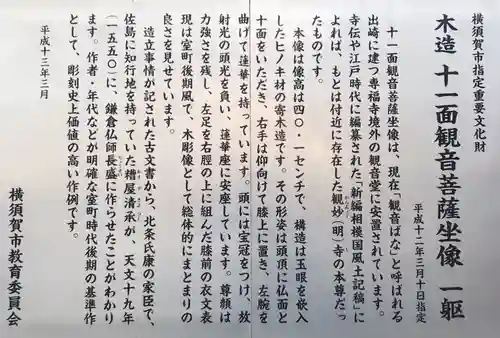 横須賀市指定重要文化財
木造 十一面観音菩薩坐像 一躯
平成十二年三月十日指定
十一面観音菩薩坐像は、現在「観音ばな」と呼ばれる
出崎に建つ専福寺境外の観音堂に安置されています。
寺伝や江戸時代に編纂された「新編相模国風土記稿」に
よれば、もとは付近に存在した観妙(明)寺の本尊だっ
たものです。
本像は像高は四〇・一センチで、構造は玉眼を嵌入
したヒノキ材の寄木造です。その形姿は頭頂に仏面と
十面をいただき、右手は仰向けて膝上に置き、左腕を
曲げて蓮華を持っています。頭には宝冠をつけ、放
射光の頭光を負い、蓮華座に安座しています。尊顔は
力強さを残し、左足を右脛の上に組んだ膝前の衣文表
現は室町後期風で、木彫像として総体的にまとまりの
良さを見せています。
造立事情が記された古文書から、北条氏康の家臣で、
佐島に知行地を持っていた糟屋清承が、天文十九年
(一五五〇)に、鎌倉仏師長盛に作らせたことがわかり
ます。作者・年代などが明確な室町時代後期の基準作
として、彫刻史上価値の高い作例です。
平成十三年三月
横須賀市教育委員会